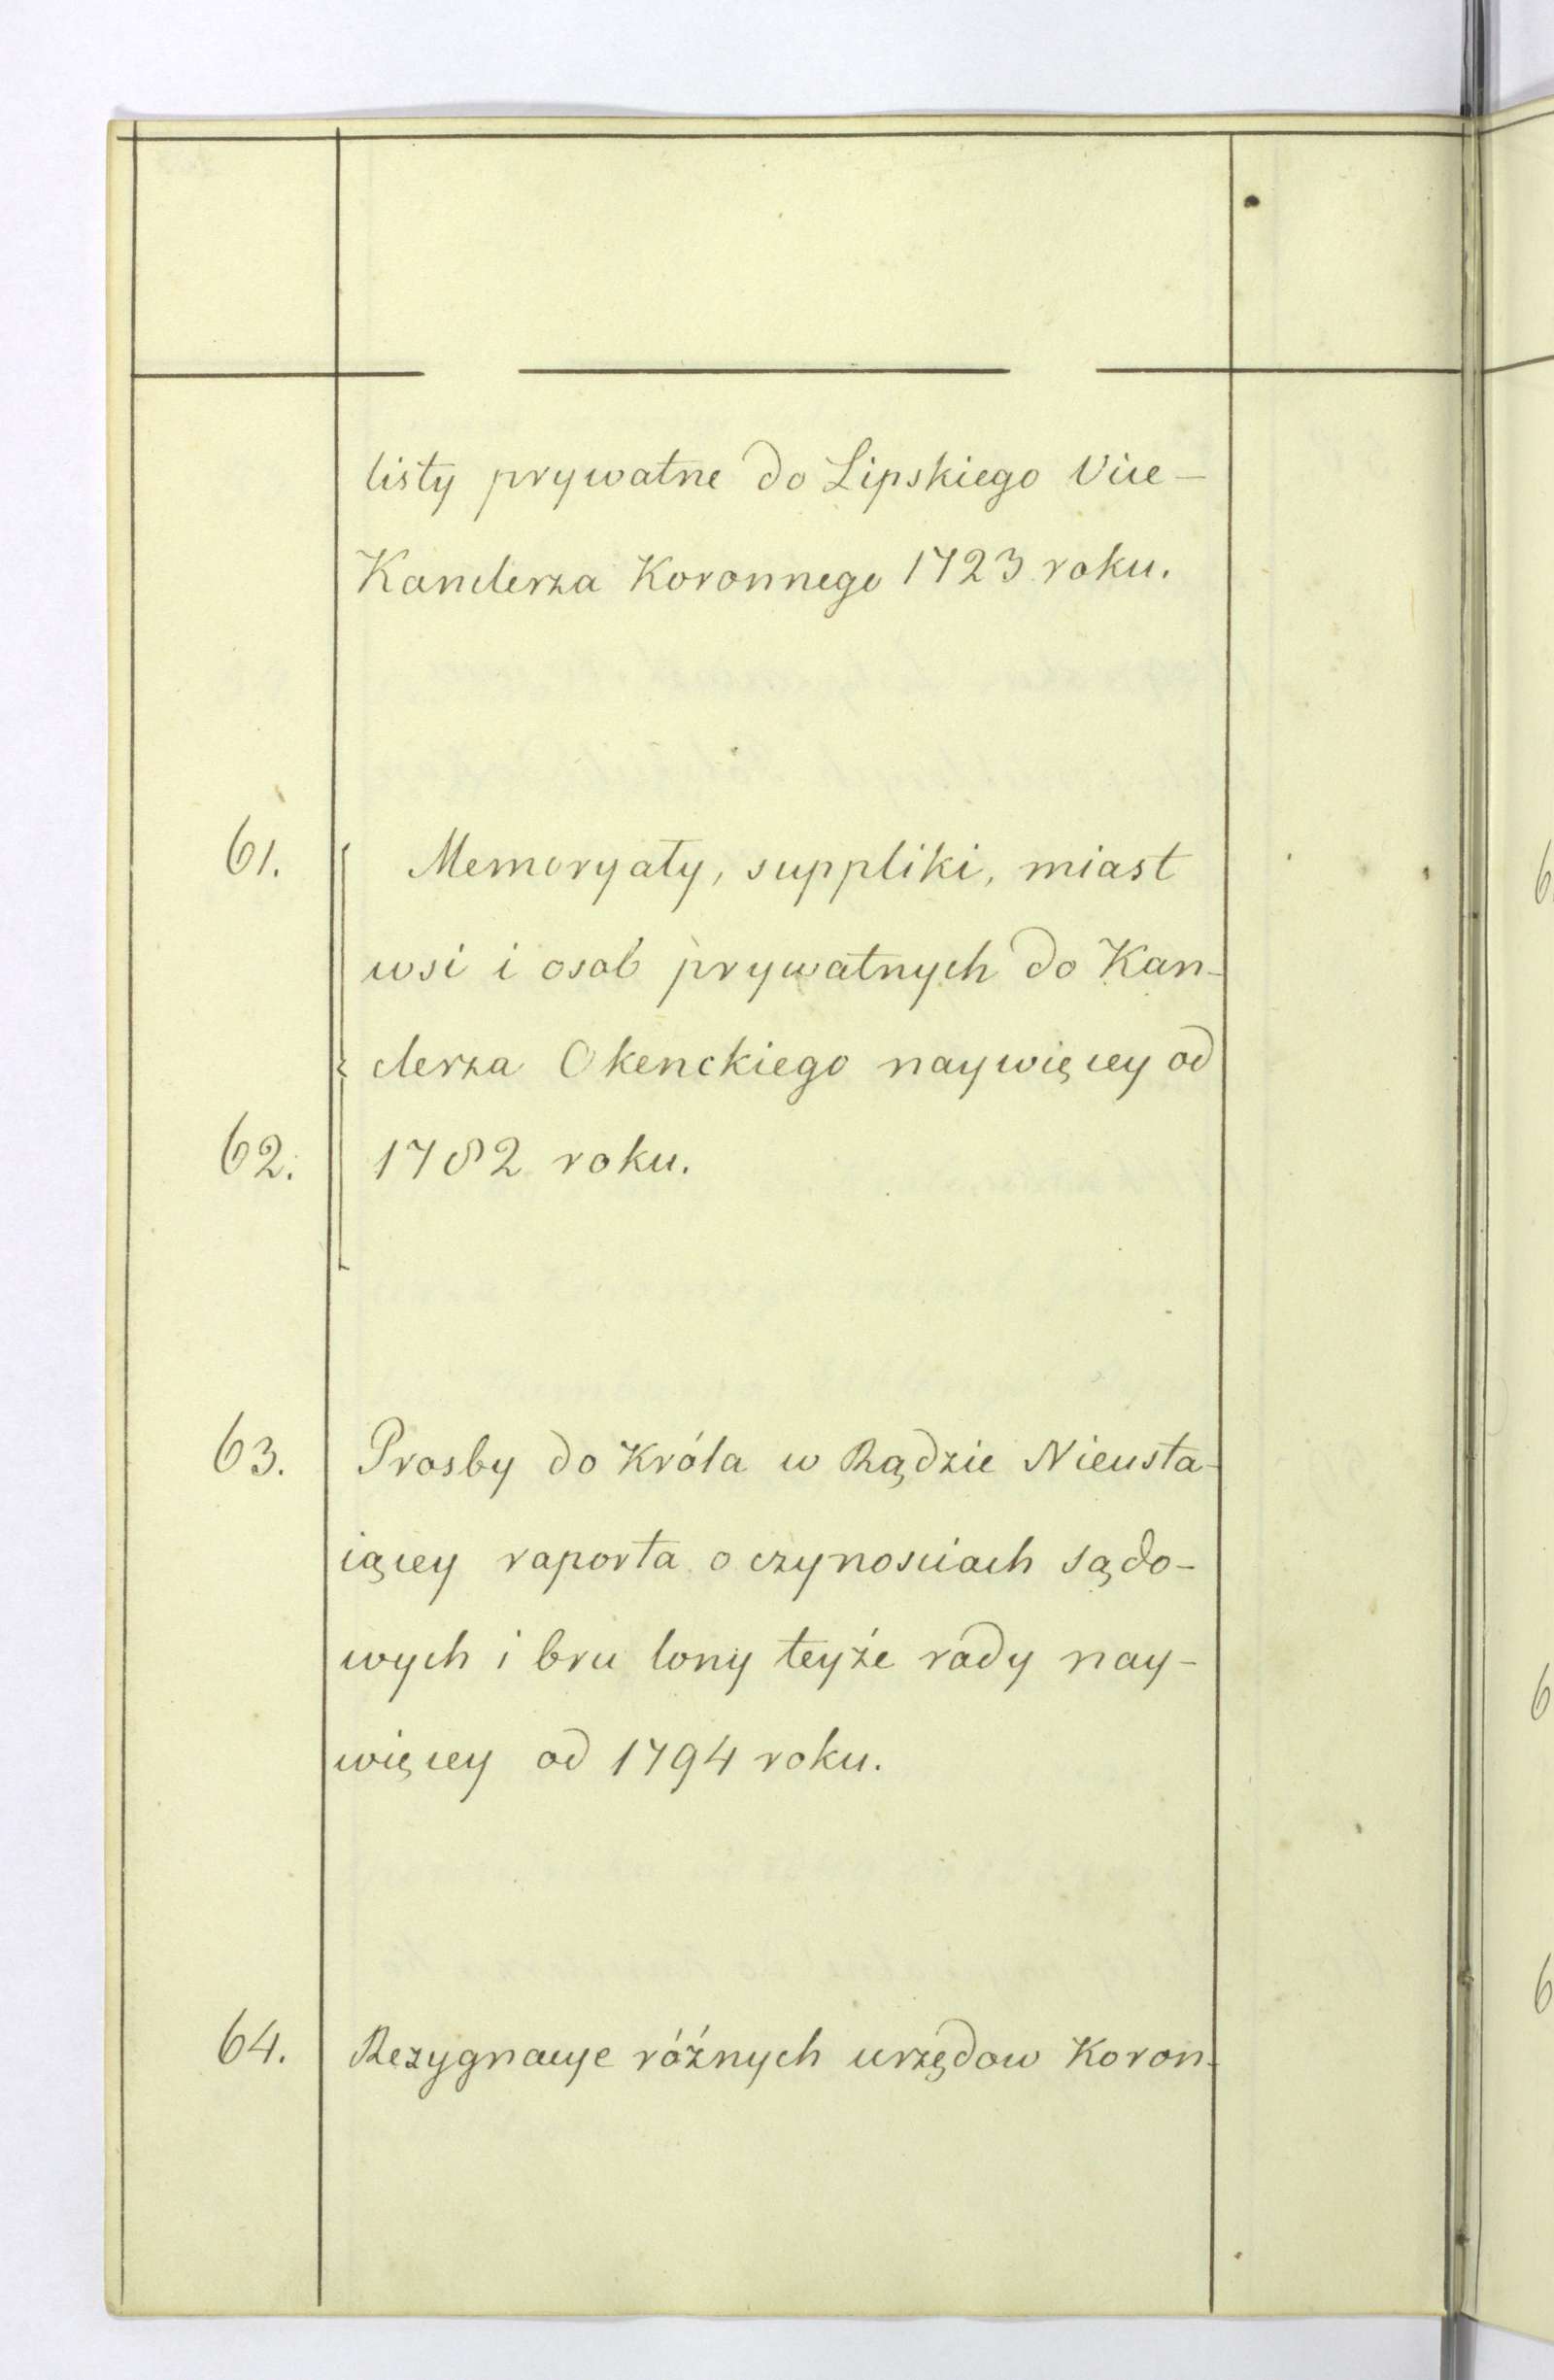 listy prywatne do Lipskiego Vice-
Kanclerza Koronnego 1723 roku.
61. Memoryały, suppliki, miast
wsi i osob prywatnych do Kan-
clerza Okenckiego naywięcey od
62. 1782 roku.
63. Prosby do Króla w Rądzie Nieusta-
iącey raporta o czynosciach sądo-
wych i bru lony teyże rady nay-
więcey od 1794 roku.
64. Rezygnacye różnych urzędow Koron-